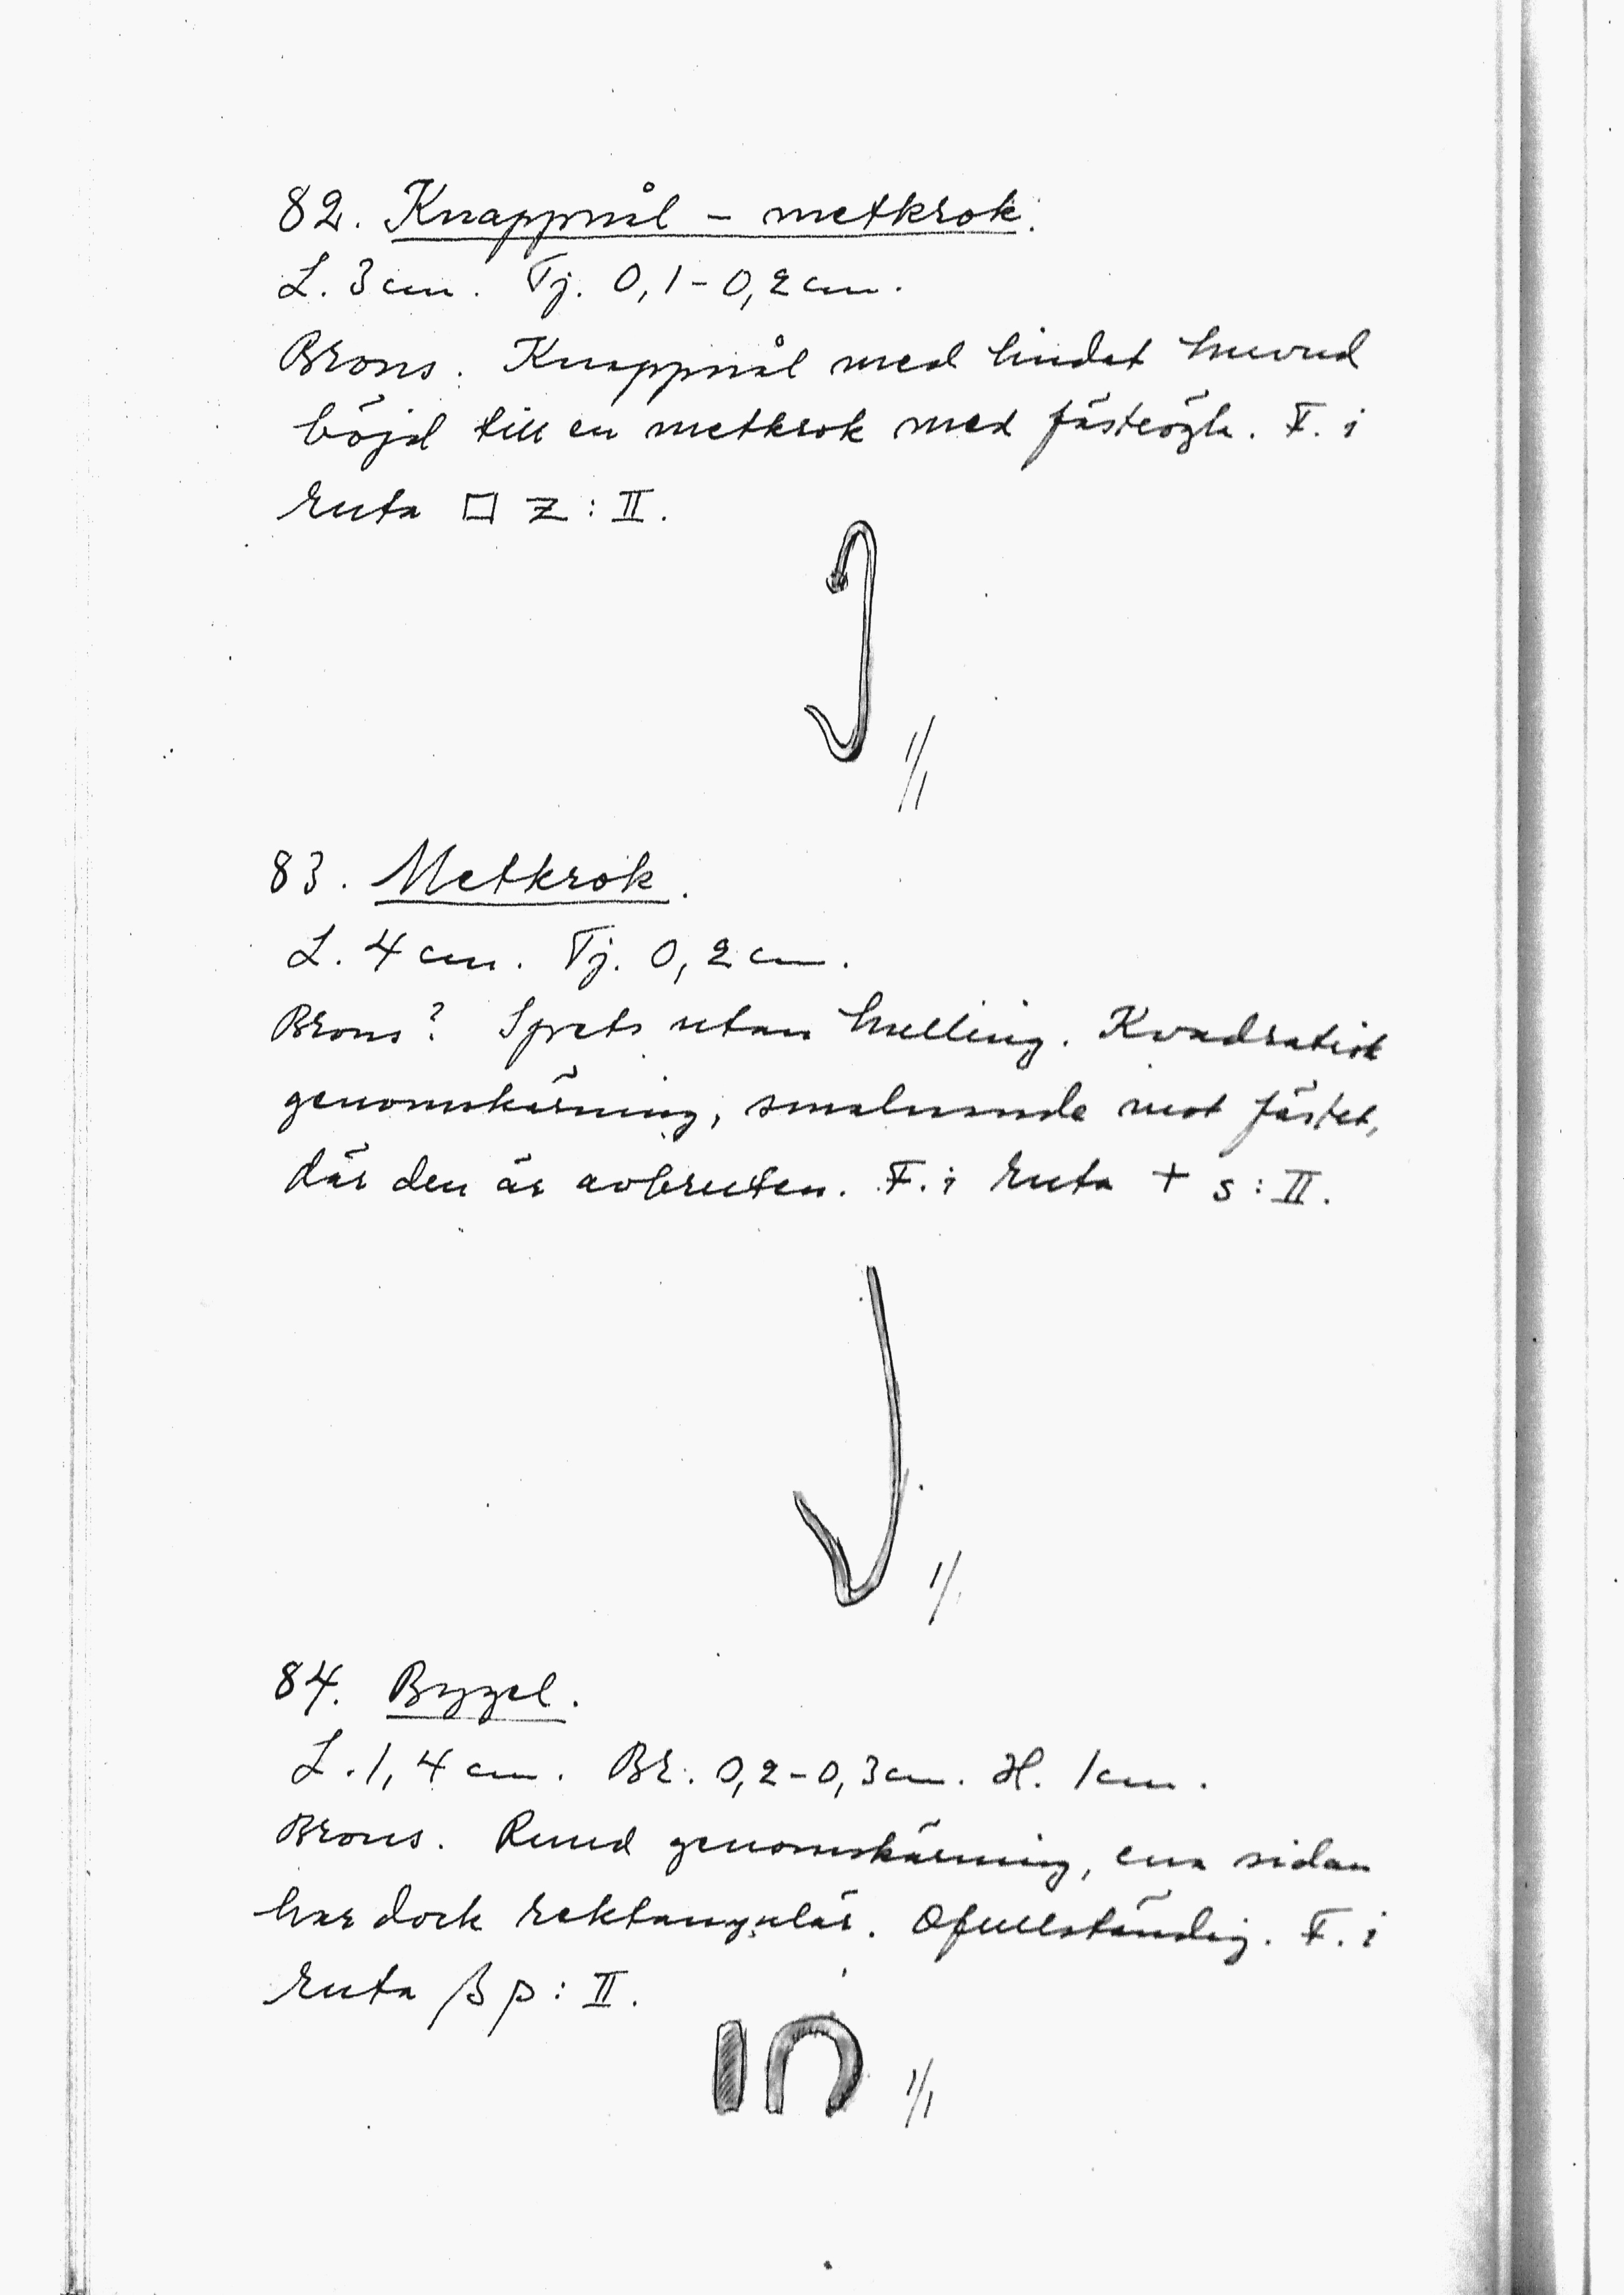 82. Knappnål – metkrok.
L. 3 cm. Tj. 0,1-0,2 cm.
Brons. Knappnål med lindat huvud
böjd till en metkrok med fästeögla. F. i
ruta □ z : II.
1/1
83. Metkrok.
L. 4 cm. Tj. 0,2 cm.
Brons? Spets utan hulling. Kvadratisk
genomskärning, smalnande mot fästet,
där den är avbruten. F. i ruta + s : II.
1/1
84. Bygel.
L. 1,4 cm. Br. 0,2-0,3 cm. H. 1 cm.
Brons. Rund genomskärning, ena sidan
har dock rektangulär. Ofullständig. F. i
ruta β p : II.
1/1